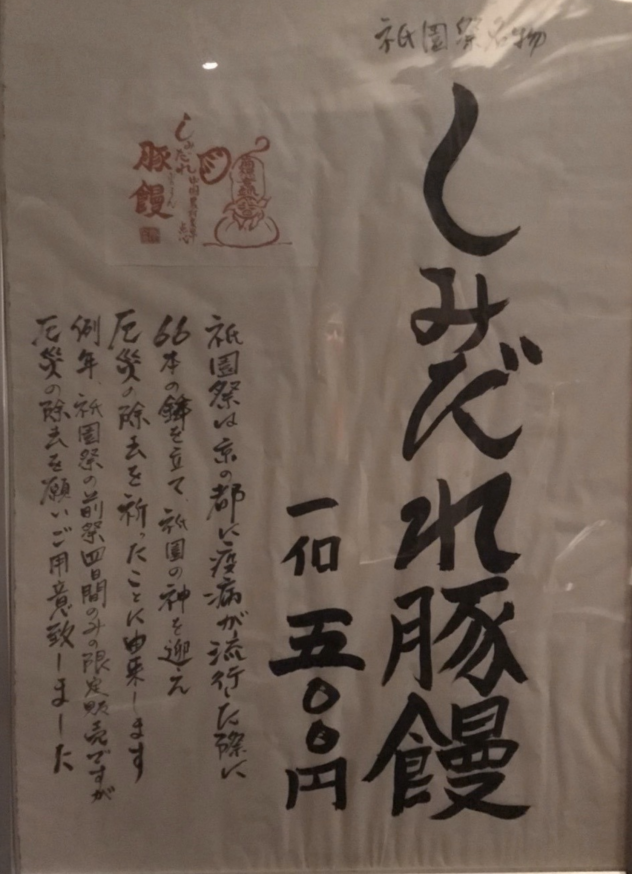 祇園祭名物
しみだれ豚饅
一個 五〇〇円
しみだれ
豚饅
祇園祭は京の都に疫病が流行した際に
66本の鉾を立て、祇園の神を迎え
厄災の除去を祈ったことに由来します
例年、祇園祭の前祭四日間のみの限定販売ですが
厄災の除去を願いご用意致しました